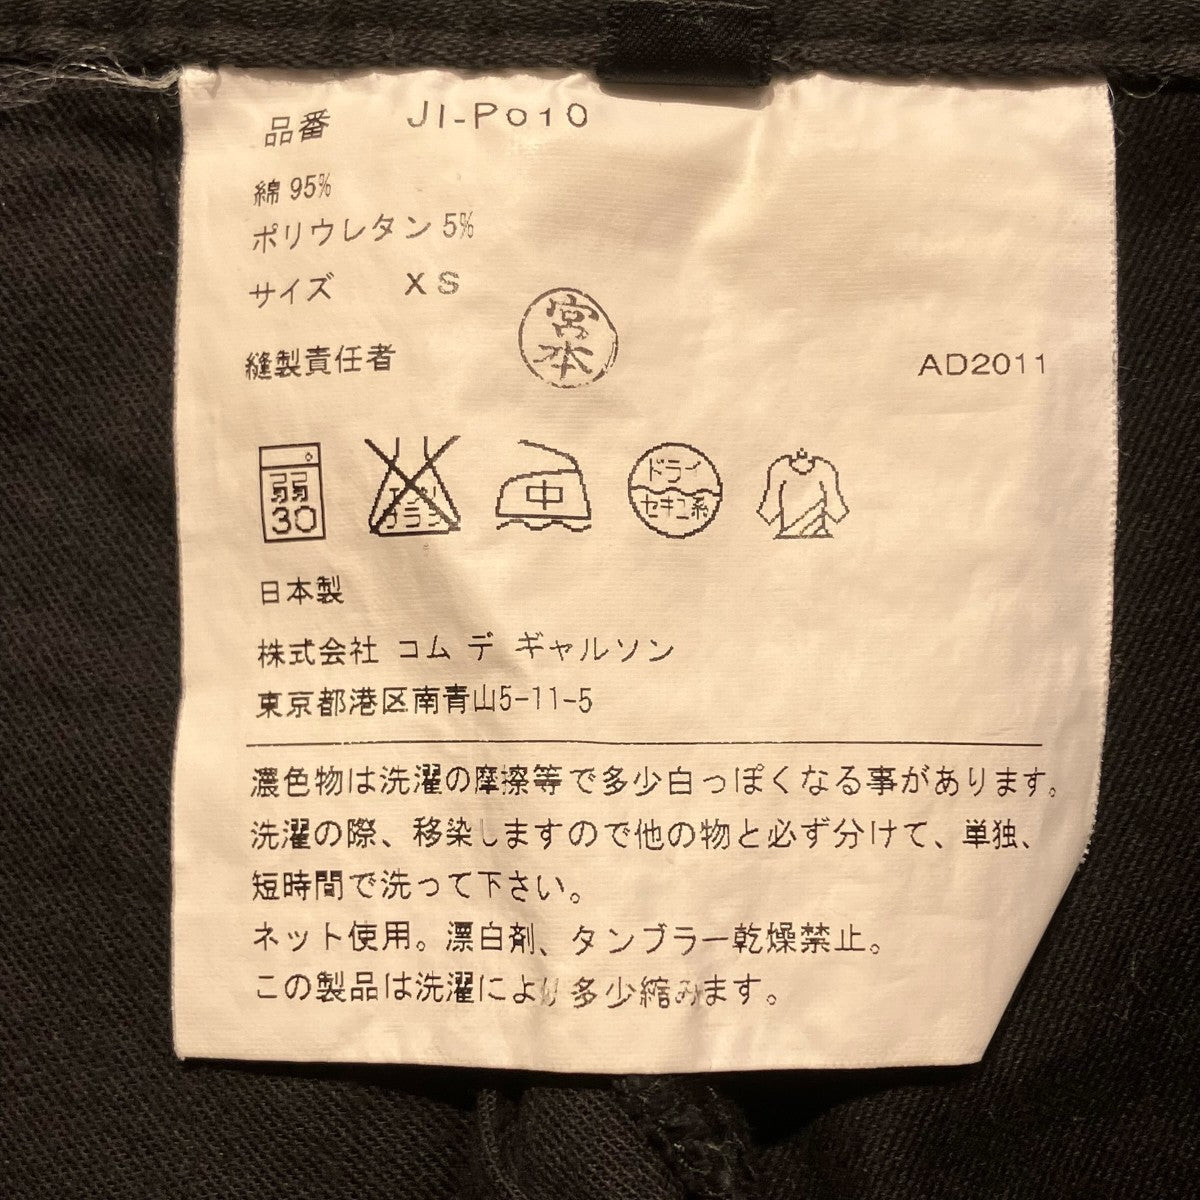 品番 JI-P010
綿 95%
ポリウレタン 5%
サイズ XS
縫製責任者 宮本 AD2011
弱 30 エンソ ブラシ 中 ドライ セキユ系
日本製
株式会社 コム デ ギャルソン
東京都港区南青山5-11-5
濃色物は洗濯の摩擦等で多少白っぽくなる事があります。
洗濯の際、移染しますので他の物と必ず分けて、単独、
短時間で洗って下さい。
ネット使用。漂白剤、タンブラー乾燥禁止。
この製品は洗濯により多少縮みます。